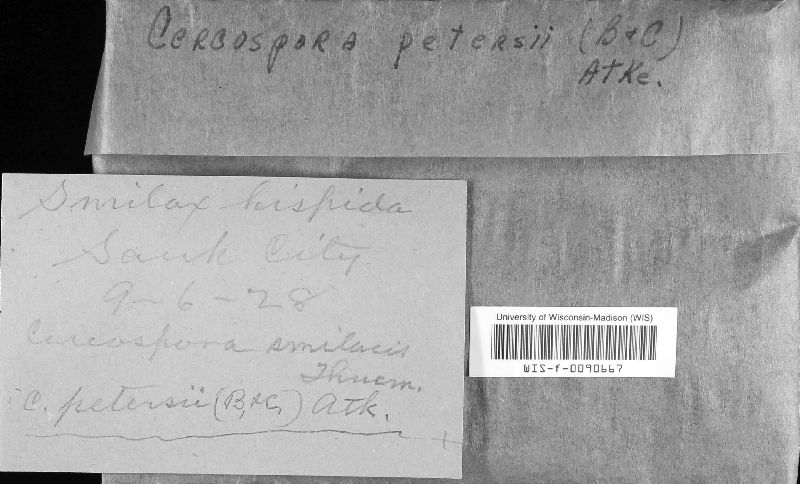 Cercospora petersii (B+C)
Atke.
Smilax hispida
Sauk City
9-6-28
Cercospora smilacis
Thuem.
C. petersii (B.+C.) Atk.
University of Wisconsin-Madison (WIS)
WIS-f-0090667